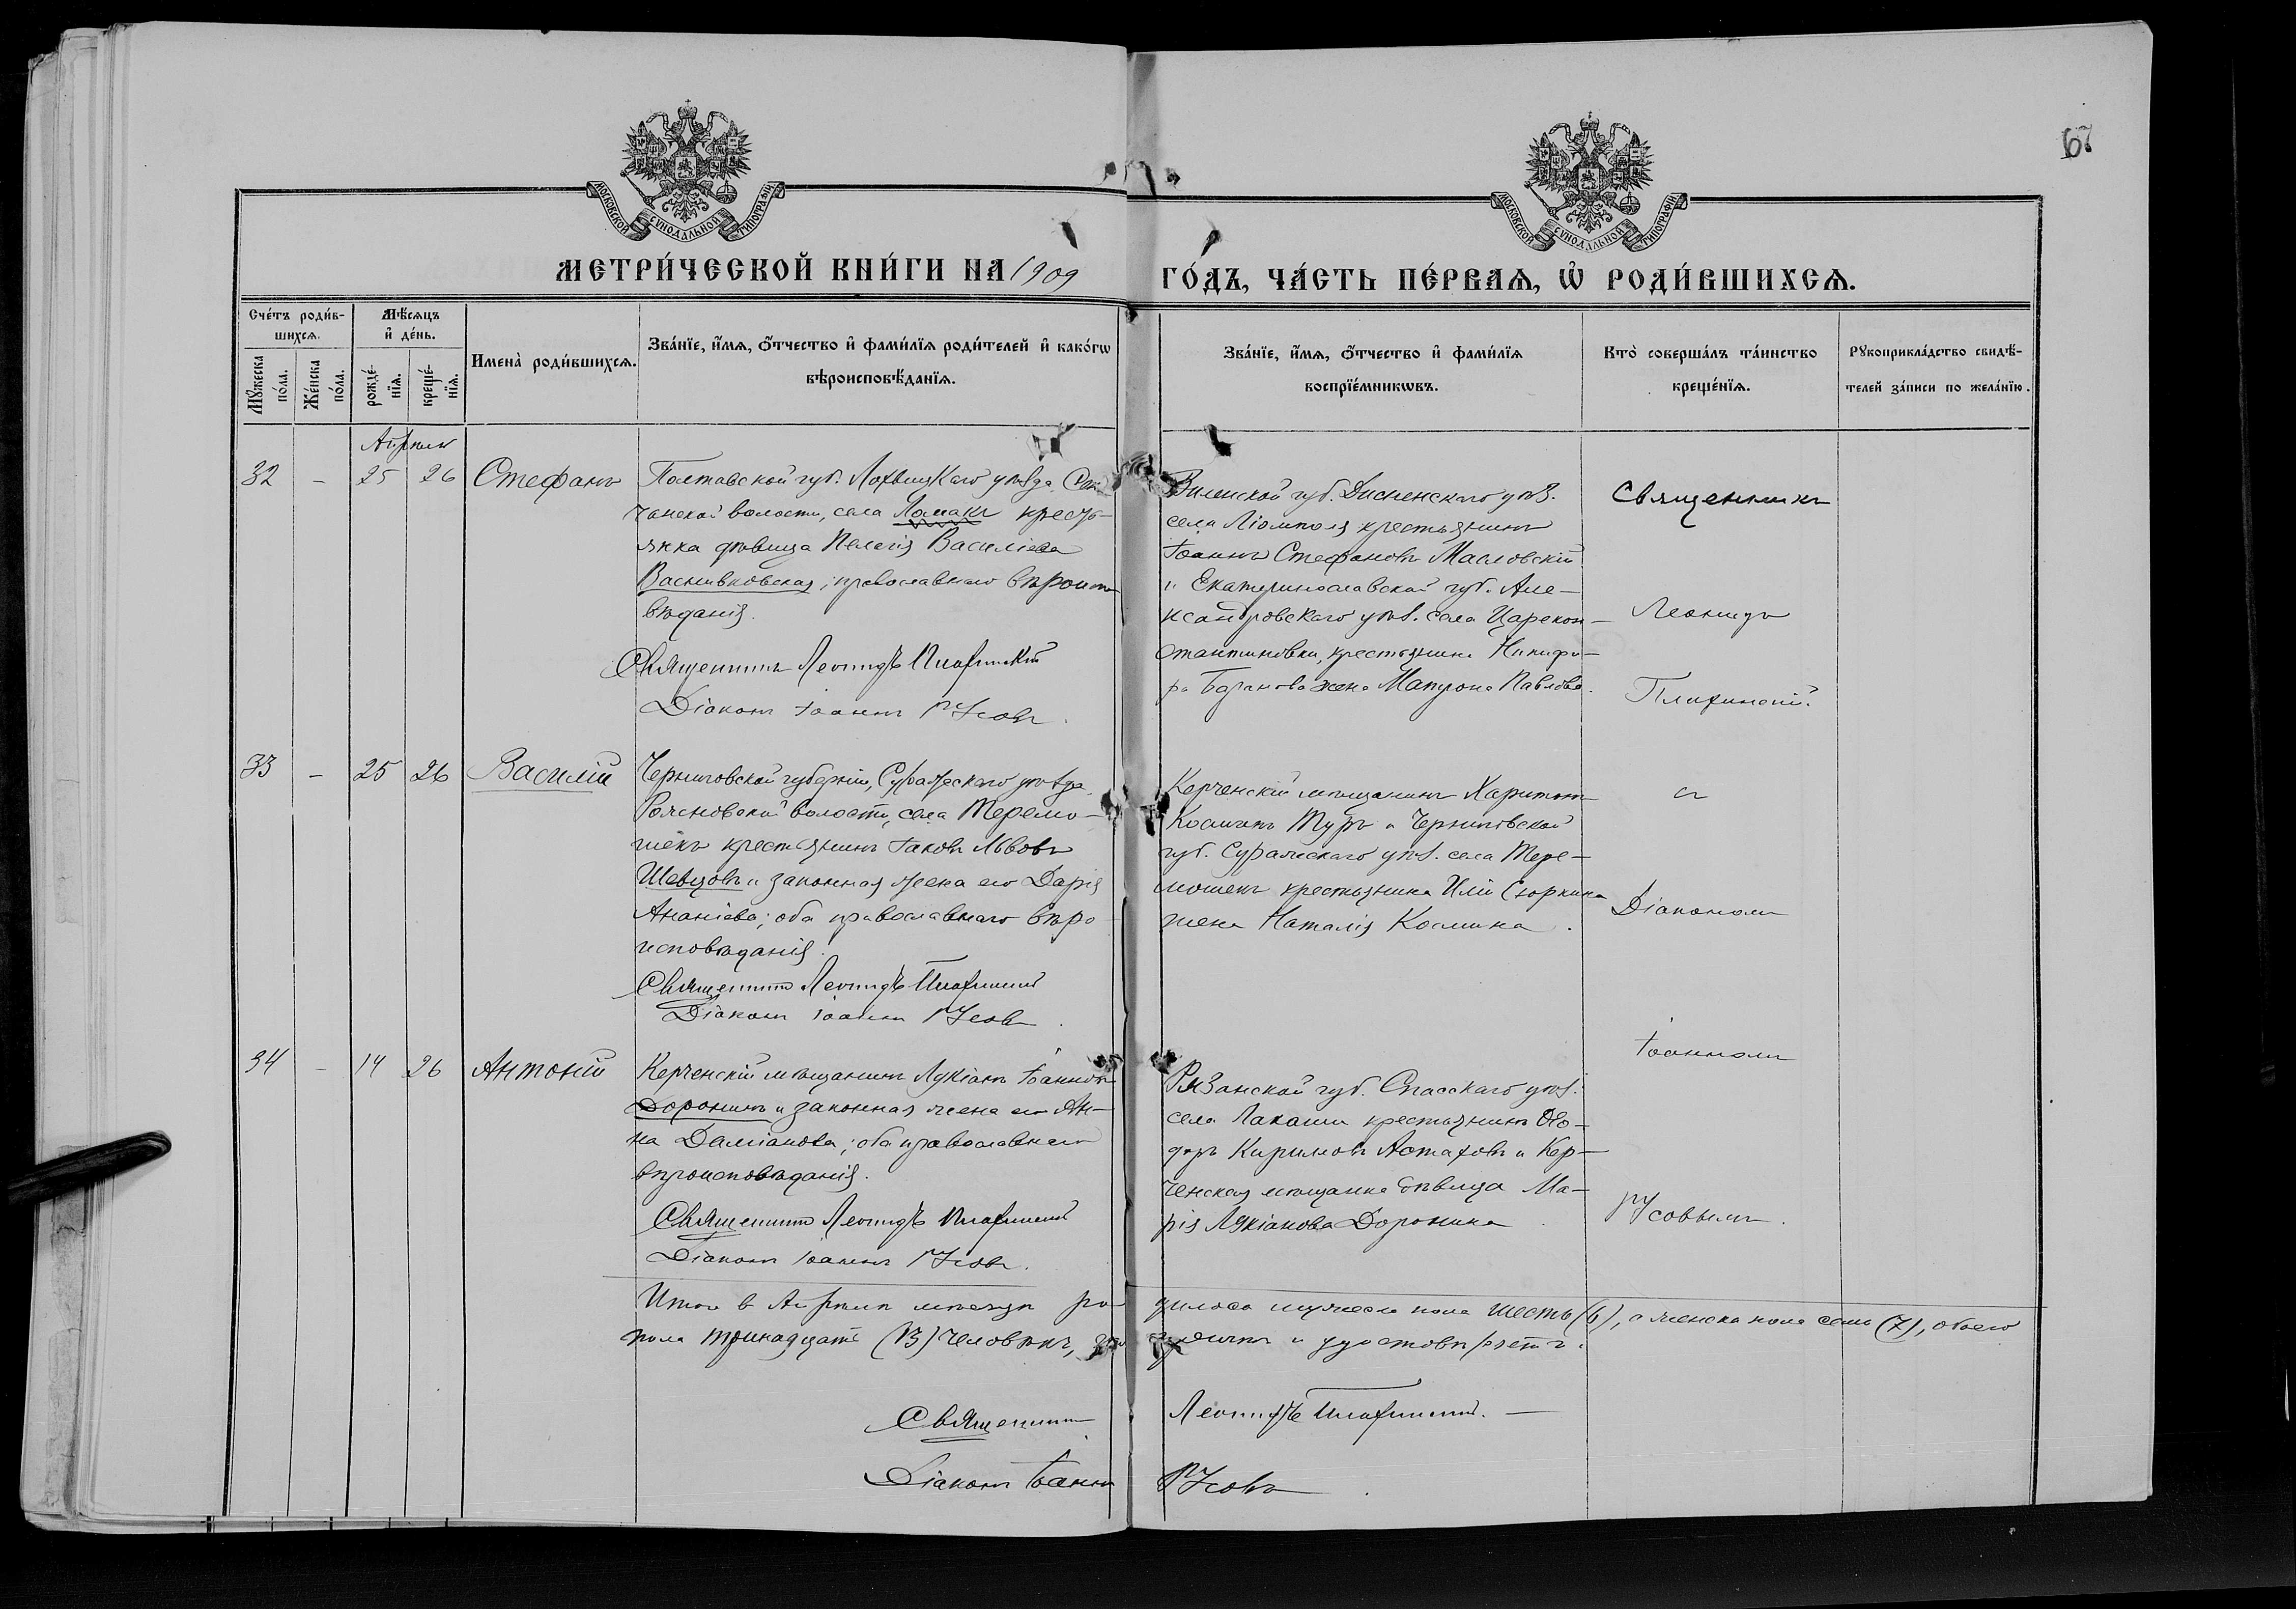 67
МОСКОВСКОЙ СУНОДАЛЬНОЙ ТИПОГРАФІИ
МОСКОВСКОЙ СУНОДАЛЬНОЙ ТИПОГРАФІИ
МЕТРИ́ЧЕСКОЙ КНИ́ГИ НА 1909 ГО́ДЪ, ЧА́СТЬ ПЕ́РВАѦ, Ѡ҆ РОДИ́ВШИХСѦ.
Сче́тъ роди́в-
шихсѧ.
Мꙋ́жеска по́ла.
Же́нска по́ла.
Мѣ́сѧцъ
и҆ де́нь.
рожде́-
нїѧ.
креще́-
нїѧ.
Имена̀ роди́вшихсѧ.
Зва́нїе, и҆́мѧ, ѻ҆́тчество и҆ фами́лїѧ роди́телей и҆ како́гѡ
вѣроисповѣ́данїѧ.
Зва́нїе, и҆́мѧ, ѻ҆́тчество и҆ фами́лїѧ
воспрїе́мникѡвъ.
Кто̀ соверша́лъ та́инство
креще́нїѧ.
Рꙋкоприкла́дство свидѣ́-
телей за́писи по жела́нїю.
Апрѣль
32 - 25 26 Стефанъ
Полтавской губ. Лохвицкаго уѣзда Сен-
чанской волости, села Ломакъ крестья-
янка дѣвица Пелагія Василіева
православнаго вѣроиспо-
вѣданія.
Священникъ Леонидъ
Діаконъ Іоаннъ Усовъ.
Виленской губ. Дисненскаго уѣз.
села крестьянинъ
Іоаннъ Стефановъ Масловскій
и Екатеринославской губ. Але-
ксандровскаго уѣз. села Царекон-
стантиновки, крестьянина Никифо-
ра Баранова жена Матрона Павлова.
Священникъ
Леонидъ
33 - 25 26 Василій
Черниговской губерніи, Суражскаго уѣзда
волости, села Теремо-
шекъ крестьянинъ Іаковъ Львовъ
Шевцовъ и законная жена его Дарія
Ананіева; оба православнаго вѣро-
исповѣданія.
Священникъ Леонидъ
Діаконъ Іоаннъ Усовъ.
Керченскій мѣщанинъ Харитонъ
Косминъ Туръ и Черниговской
губ. Суражскаго уѣз. села Тере-
мошекъ крестьянина Иліи Сюркина
жена Наталія Космина.
съ
Діакономъ
Іоанномъ
Усовымъ.
34 - 14 26 Антоній
Керченскій мѣщанинъ Лукіанъ Іоанновъ
Доронинъ и законная жена его Ан-
на Даміанова; оба православнаго
вѣроисповѣданія.
Священникъ Леонидъ
Діаконъ Іоаннъ Усовъ.
Рязанской губ. Спасскаго уѣз.
села Лакаши крестьянинъ Ѳео-
доръ Кириловъ Астаховъ и Кер-
ченская мѣщанка дѣвица Ма-
рія Лукіанова Доронина.
Итого в Апрѣлѣ мѣсяцѣ родилось мужеска пола шесть (6), а женска пола семь (7), обоего
пола тринадцать (13) человѣкъ, и удостовѣряетъ.
Священникъ Леонидъ
Діаконъ Іоаннъ Усовъ